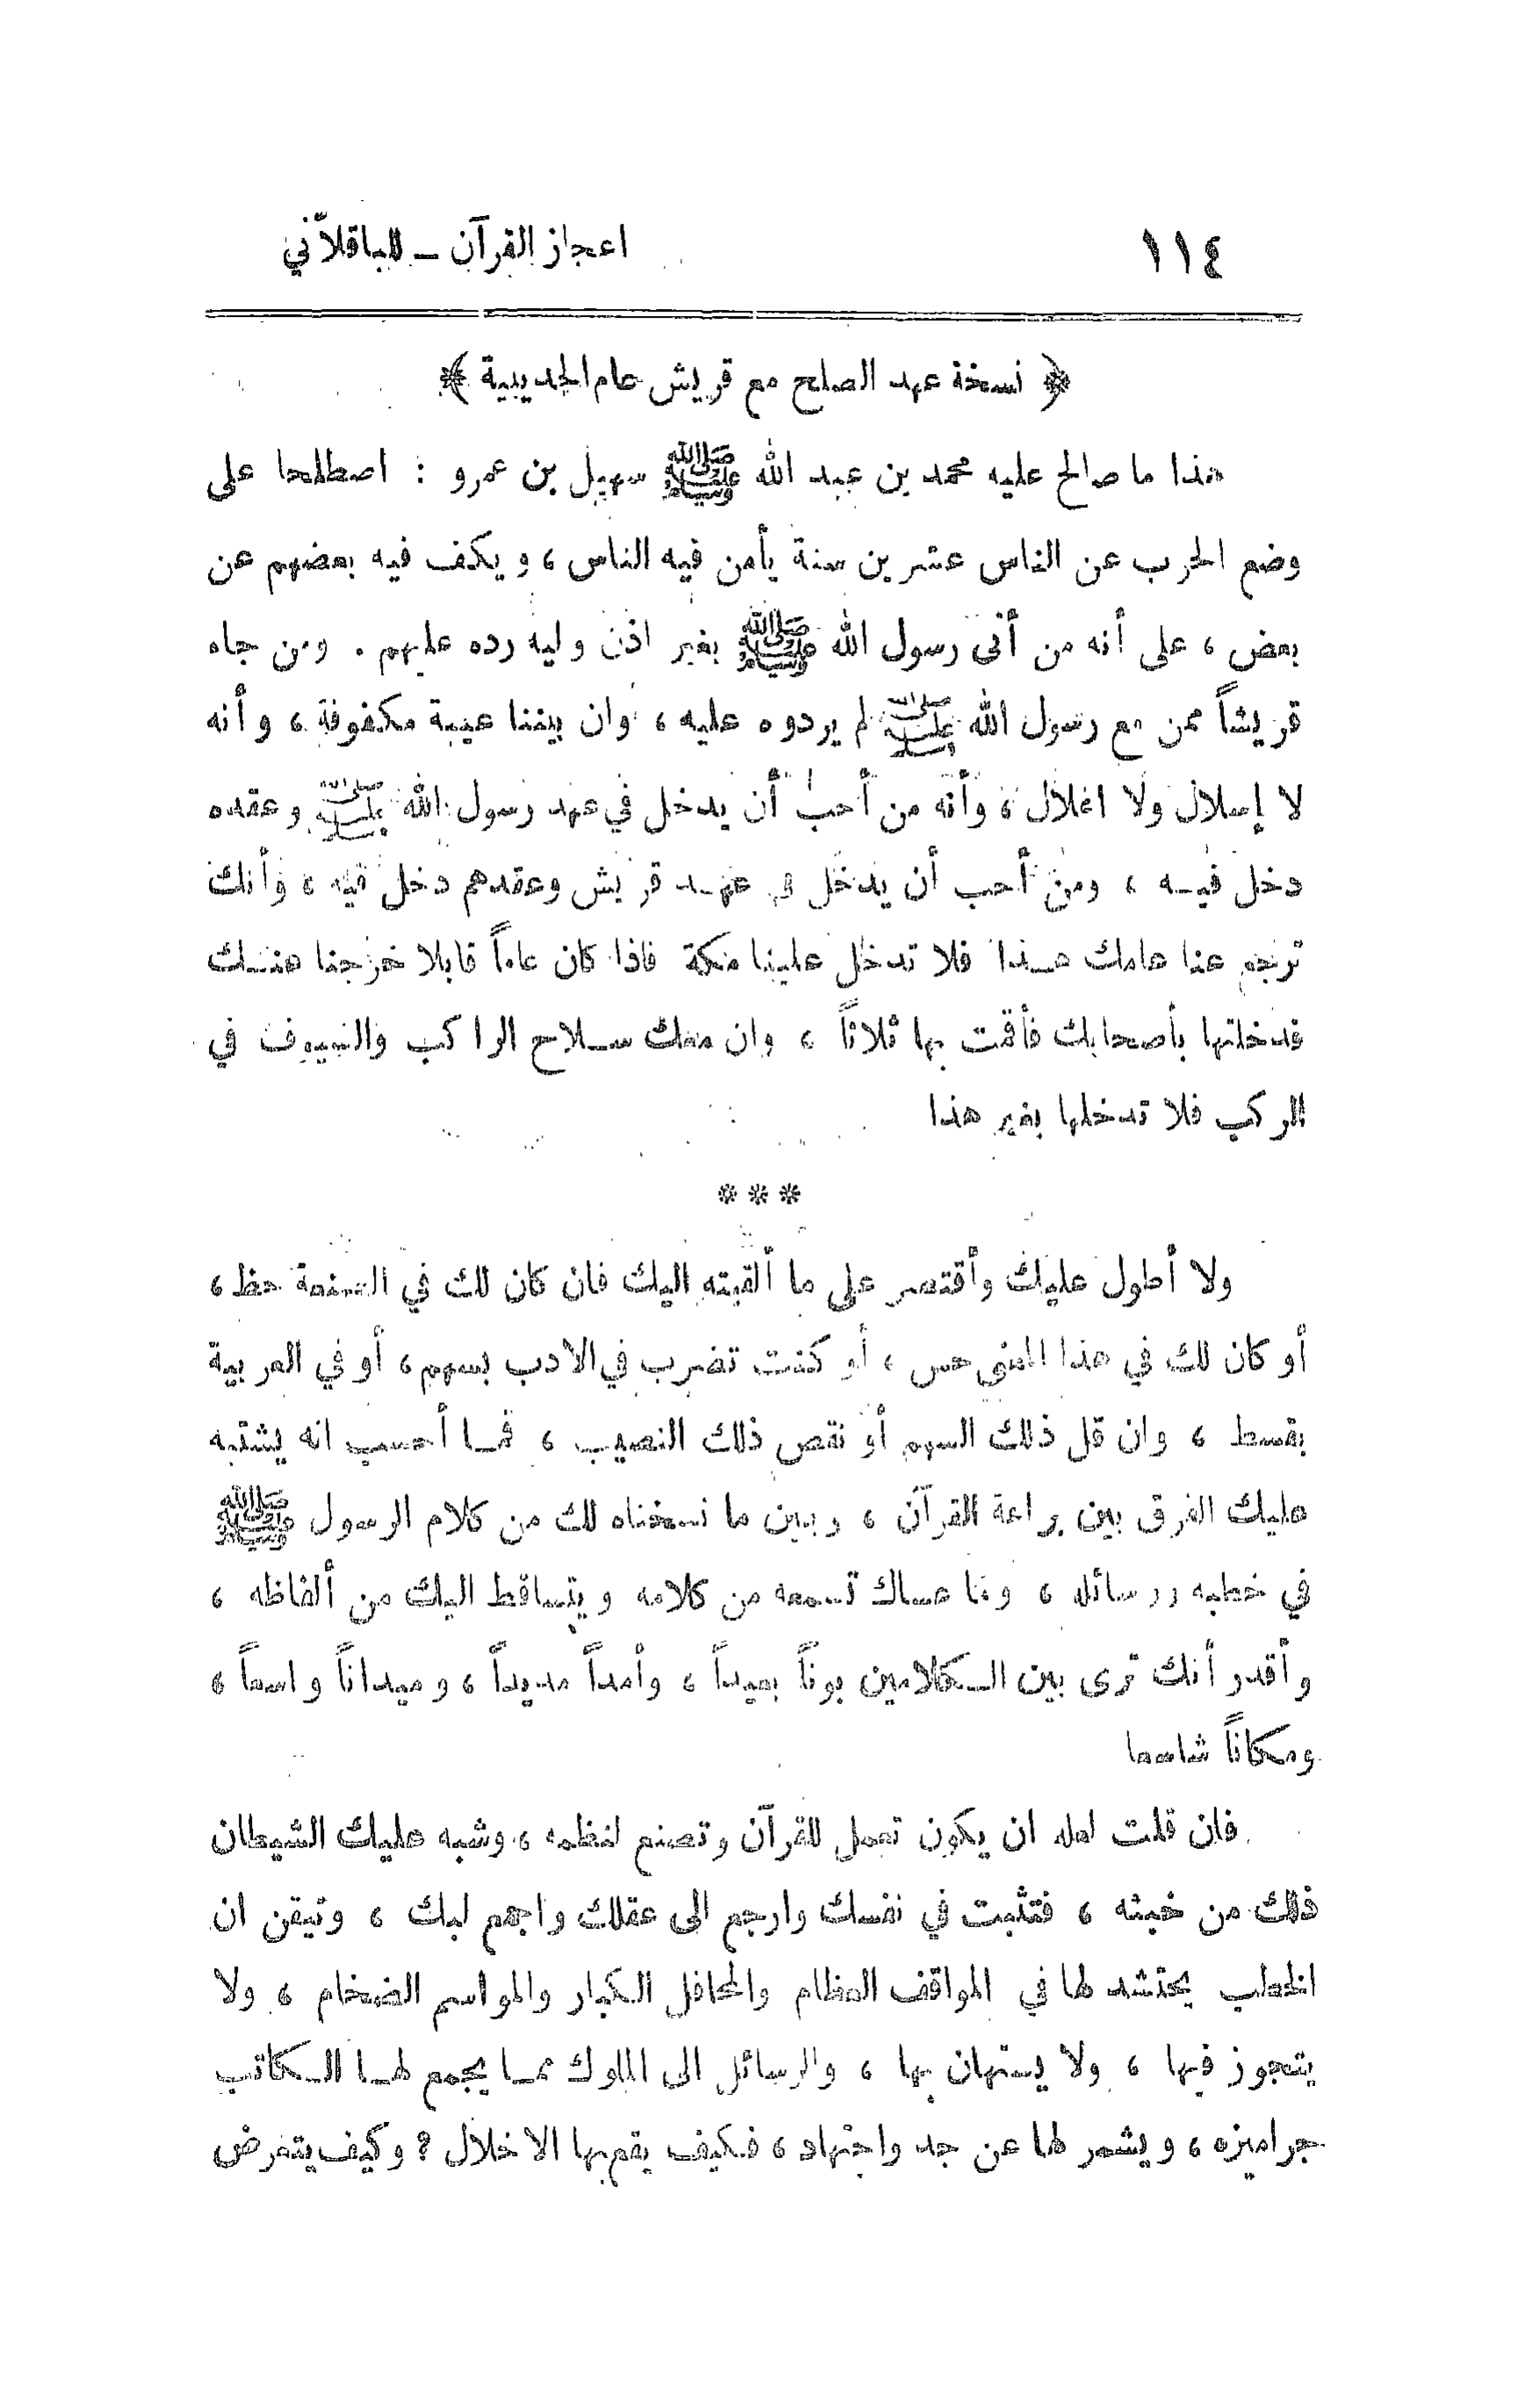 ١١٤
اعجاز القرآن ـ للباقلاّني
﴿ نسخة عهد الصلح مع قريش عام الحديبية ﴾
هذا ما صالح عليه محمد بن عبد الله ﷺ سهيل بن عمرو : اصطلحا على
وضع الحرب عن الناس عشرين سنة يأمن فيه الناس ، ويكف فيه بعضهم عن
بعض ، على أنه من أتى رسول الله ﷺ بغير اذن وليه رده عليهم . ومن جاء
قريشاً ممن مع رسول الله ﷺ لم يردوه عليه ، وان بيننا عيبة مكفوفة ، وأنه
لا إسلال ولا اغلال ، وأنه من أحب أن يدخل في عهد رسول الله ﷺ وعقده
دخل فيه ، ومن أحب أن يدخل في عهد قريش وعقدهم دخل فيه ، وأنك
ترجع عنا عامك هذا فلا تدخل علينا مكة فاذا كان عاماً قابلا خرجنا عنك
فدخلتها بأصحابك فأقمت بها ثلاثاً ، وان معك سلاح الراكب والسيوف في
الركب فلا تدخلها بغير هذا
***
ولا أطول عليك وأقتصر على ما ألقيته اليك فان كان لك في الصنعة حظ ،
أو كان لك في هذا المعنى حس ، أو كنت تضرب في الادب بسهم ، أو في العربية
بقسط ، وان قل ذلك السهم أو نقص ذلك النصيب ، فما أحسب انه يشتبه
عليك الفرق بين براعة القرآن ، وبين ما نسخناه لك من كلام الرسول ﷺ
في خطبه ورسائله ، وما عساك تسمعه من كلامه ويتساقط اليك من ألفاظه ،
وأقدر أنك ترى بين الكلامين بوناً بعيداً ، وأمداً مديداً ، وميداناً واسعاً ،
ومكاناً شاسعا
فان قلت لعله ان يكون تعمل للقرآن وتصنع لنظمه ، وشبه عليك الشيطان
ذلك من خبثه ، فتثبت في نفسك وارجع الى عقلك واجمع لبك ، وتيقن ان
الخطب يحتشد لها في المواقف العظام والمحافل الكبار والمواسم الضخام ، ولا
يتجوز فيها ، ولا يستهان بها ، والرسائل الى الملوك مما يجمع لها الكاتب
جراميزه ، ويشمر لها عن جد واجتهاد ، فكيف يقع بها الاخلال ؟ وكيف يتعرض